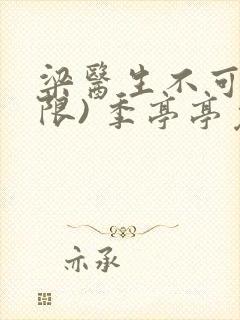 梁醫生不可
限)季亭亭
亦承